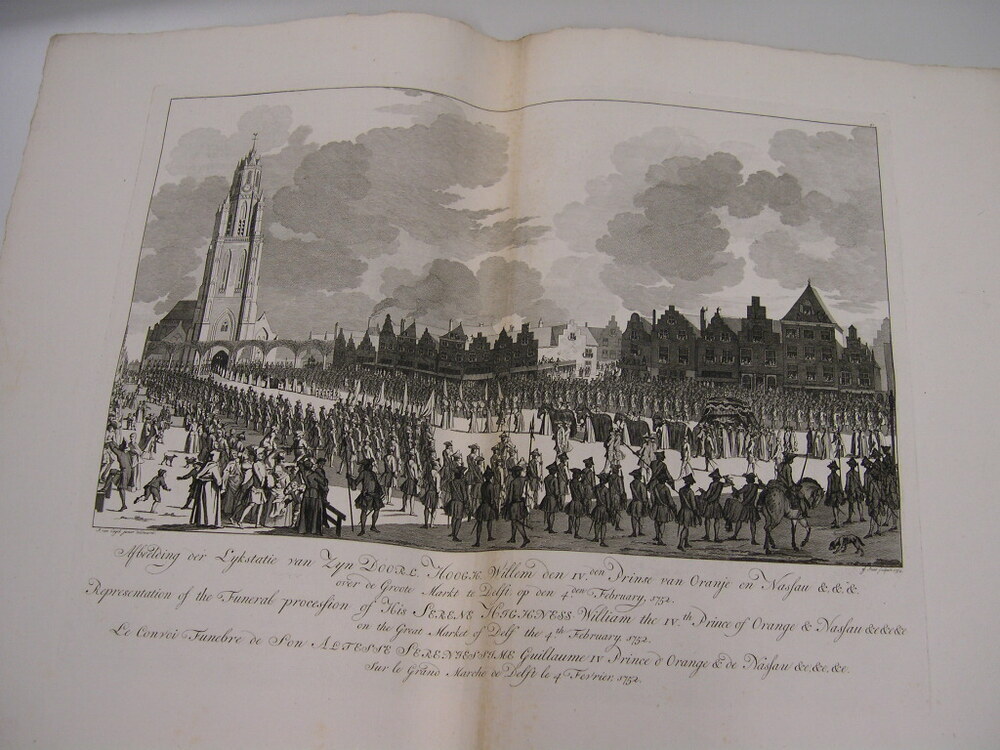 Afbeelding der Lykstatie van Zyn DOORL. HOOGH. Willem den IV.den Prinse van Oranje en Nassau &.&.&.
over de Groote Markt te Delft. op den 4.den February, 1752.
Representation of the Funeral procession of His SERENE HIGHNESS William the IV.th Prince of Orange & Nassau &c&c&c
on the Great Market of Delf the 4th February, 1752.
Le Convoi Funebre de Son ALTESSE SERENISSIME Guillaume IV Prince d'Orange & de Nassau &c.&c.&c.
Sur le Grand Marche de Delft le 4 Fevrier, 1752.